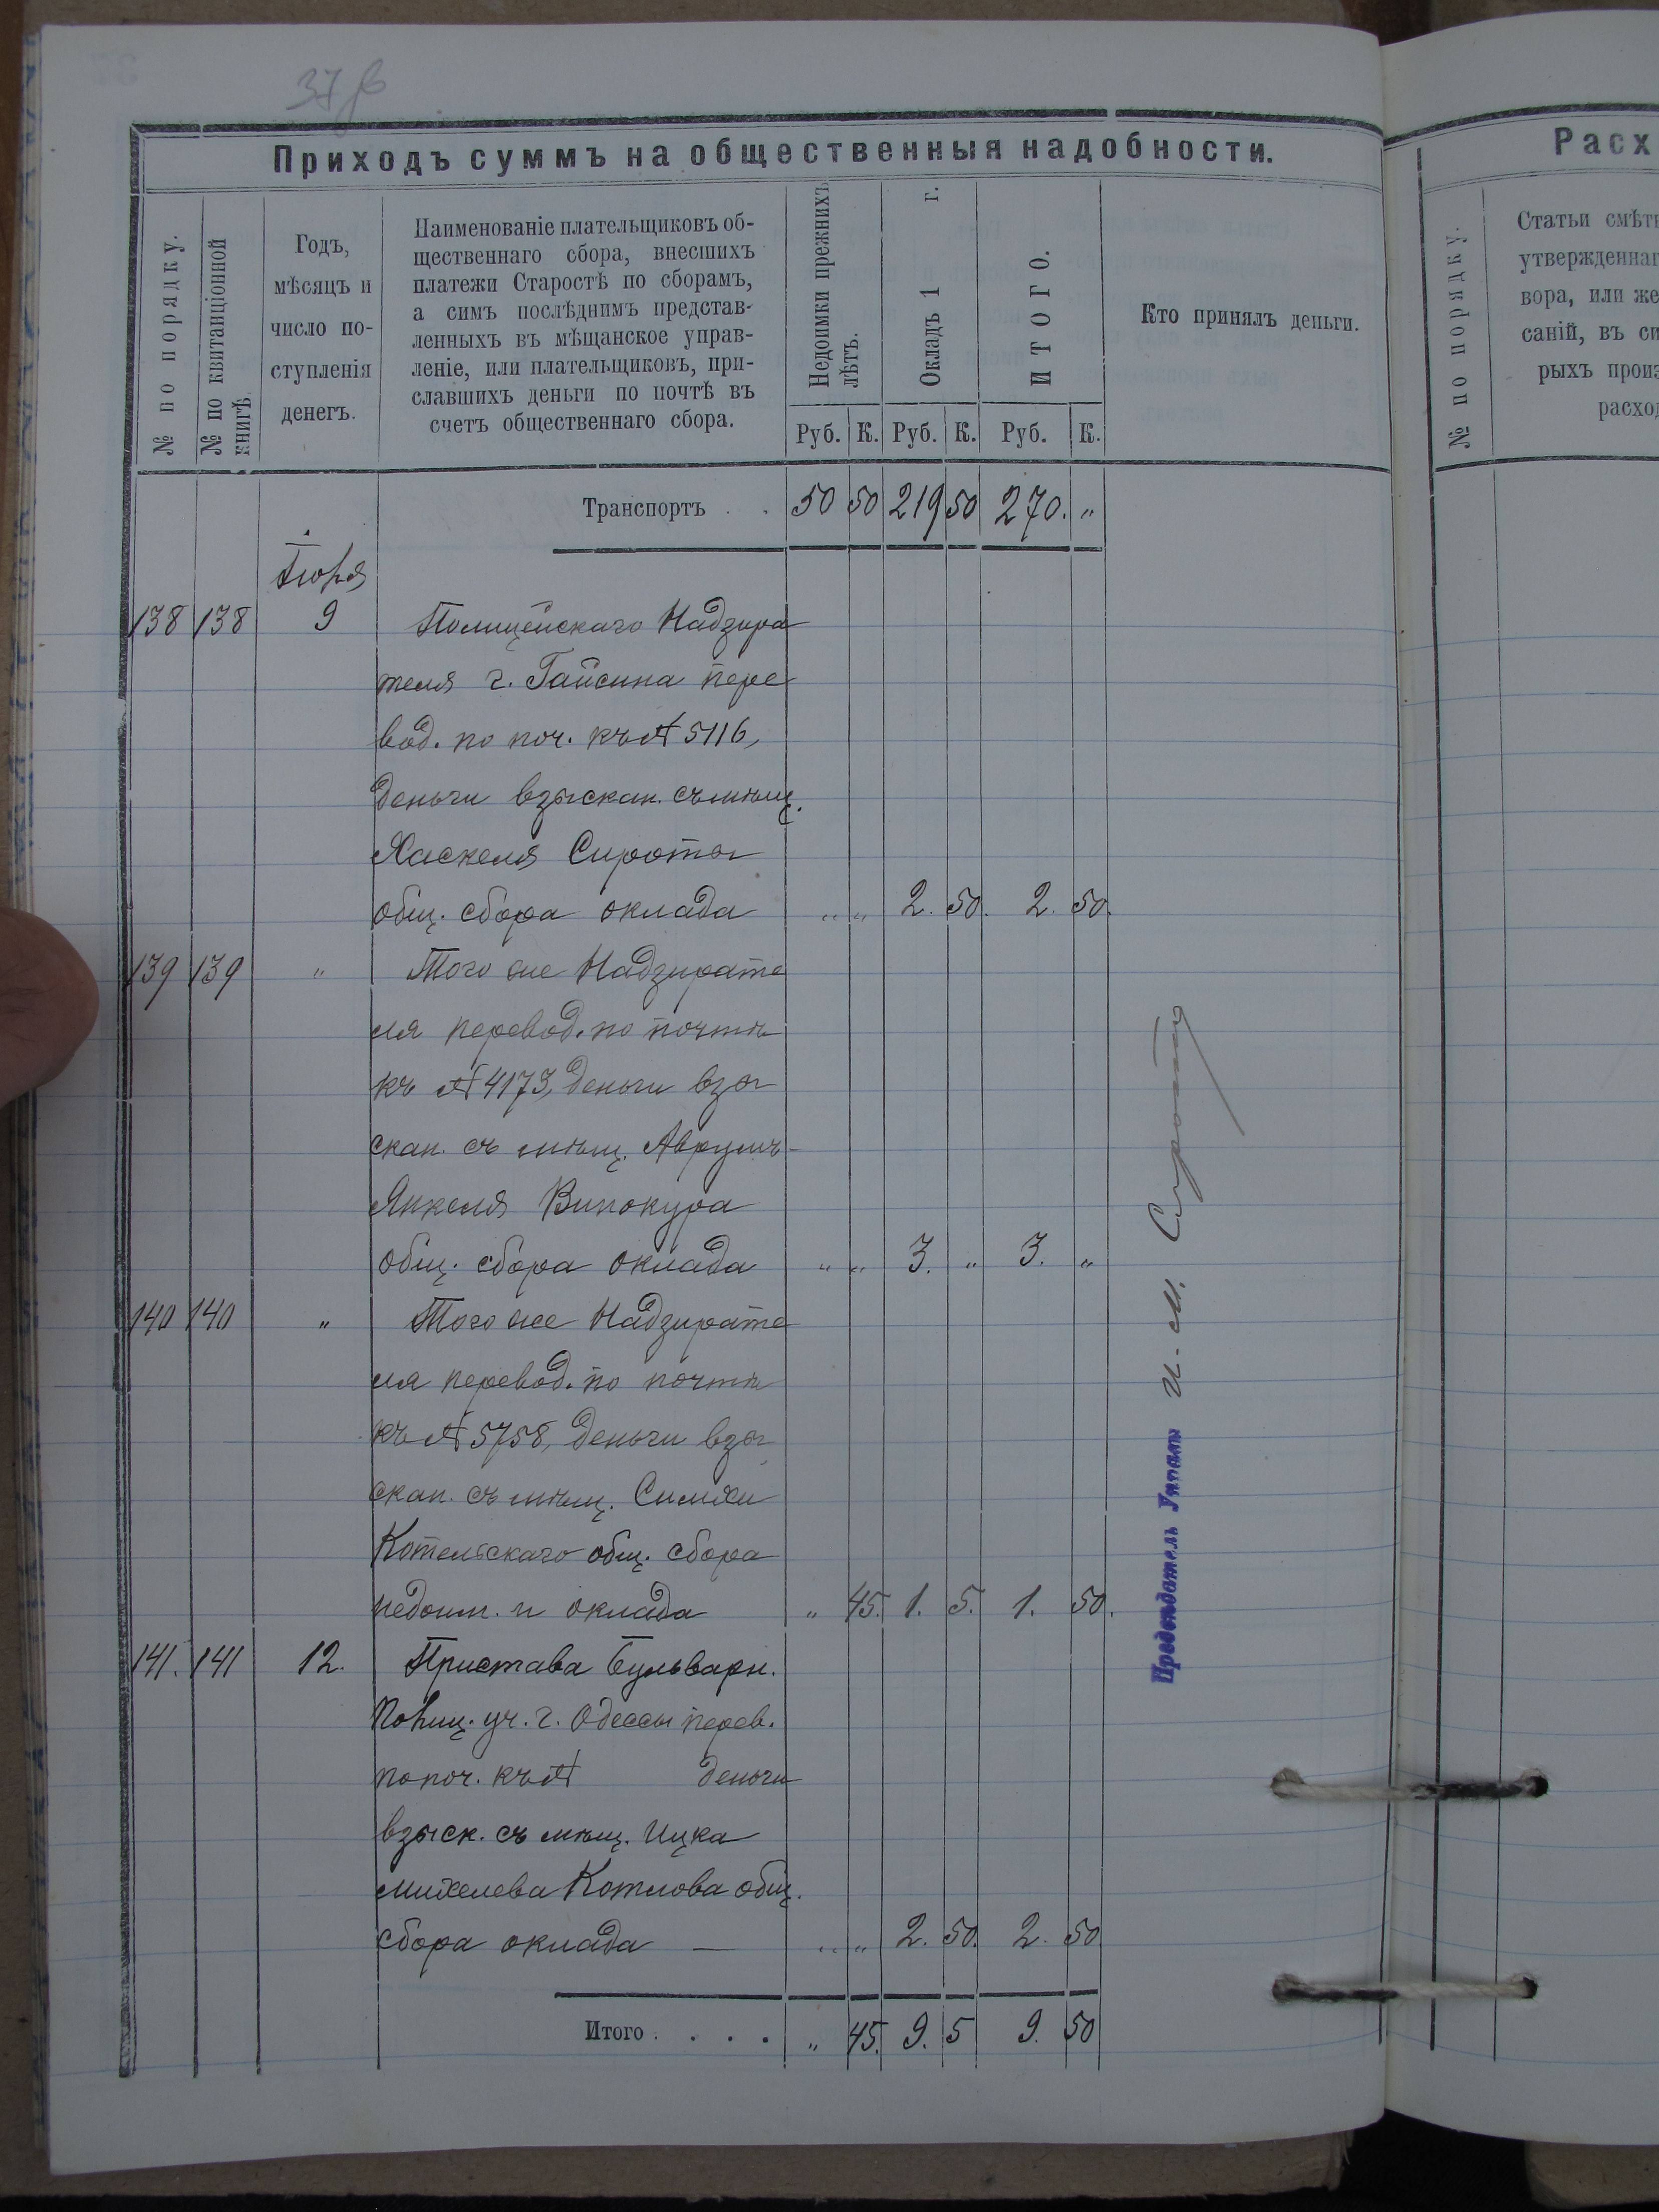 37 в
Приходъ суммъ на общественныя надобности.
№ по порядку.
№ по квитанціонной
книгѣ.
Годъ,
мѣсяцъ и
число по-
ступленія
денегъ.
Наименованіе плательщиковъ об-
щественнаго сбора, внесшихъ
платежи Старостѣ по сборамъ,
а симъ послѣднимъ представ-
ленныхъ въ мѣщанское управ-
леніе, или плательщиковъ, при-
славшихъ деньги по почтѣ въ
счетъ общественнаго сбора.
Недоимки прежнихъ
лѣтъ.
Окладъ 1 г.
ИТОГО.
Руб. К. Руб. К. Руб. К.
Кто принялъ деньги.
Транспортъ . . 50 50 219 50 270. "
Іюля
138 138 9 Полицейскаго Надзира
теля г. Гайсина пере
вод. по поч. къ № 5116,
деньги взыскан. съ мѣщ.
Хаскеля Сироты
общ. сбора оклада " " 2. 50. 2. 50.
139 139 " Того же Надзирате
ля перевод. по почтѣ
къ № 4173, деньги взы
скан. съ мѣщ. Аврумъ-
Янкеля Винокура
общ. сбора оклада " " 3. " 3. "
140 140 " Того же Надзирате
ля перевод. по почтѣ
къ № 5758, деньги взы
скан. съ мѣщ. Симхи
Котельскаго общ. сбора
недоим. и оклада " 45. 1. 5. 1. 50.
141. 141 12. Пристава Бульварн.
Полиц. уч. г. Одессы перев.
по поч. къ № деньги
взыск. съ мѣщ. Ицка
Михелева Котлова общ.
сбора оклада — " " 2. 50. 2. 50.
Итого . . . . " 45. 9. 5 9. 50
Предсѣдатель Управы И. М. Сирота
Расх
№ по порядку.
Статьи смѣт
утвержденнаг
вора, или же
саній, въ си
рыхъ произ
расход